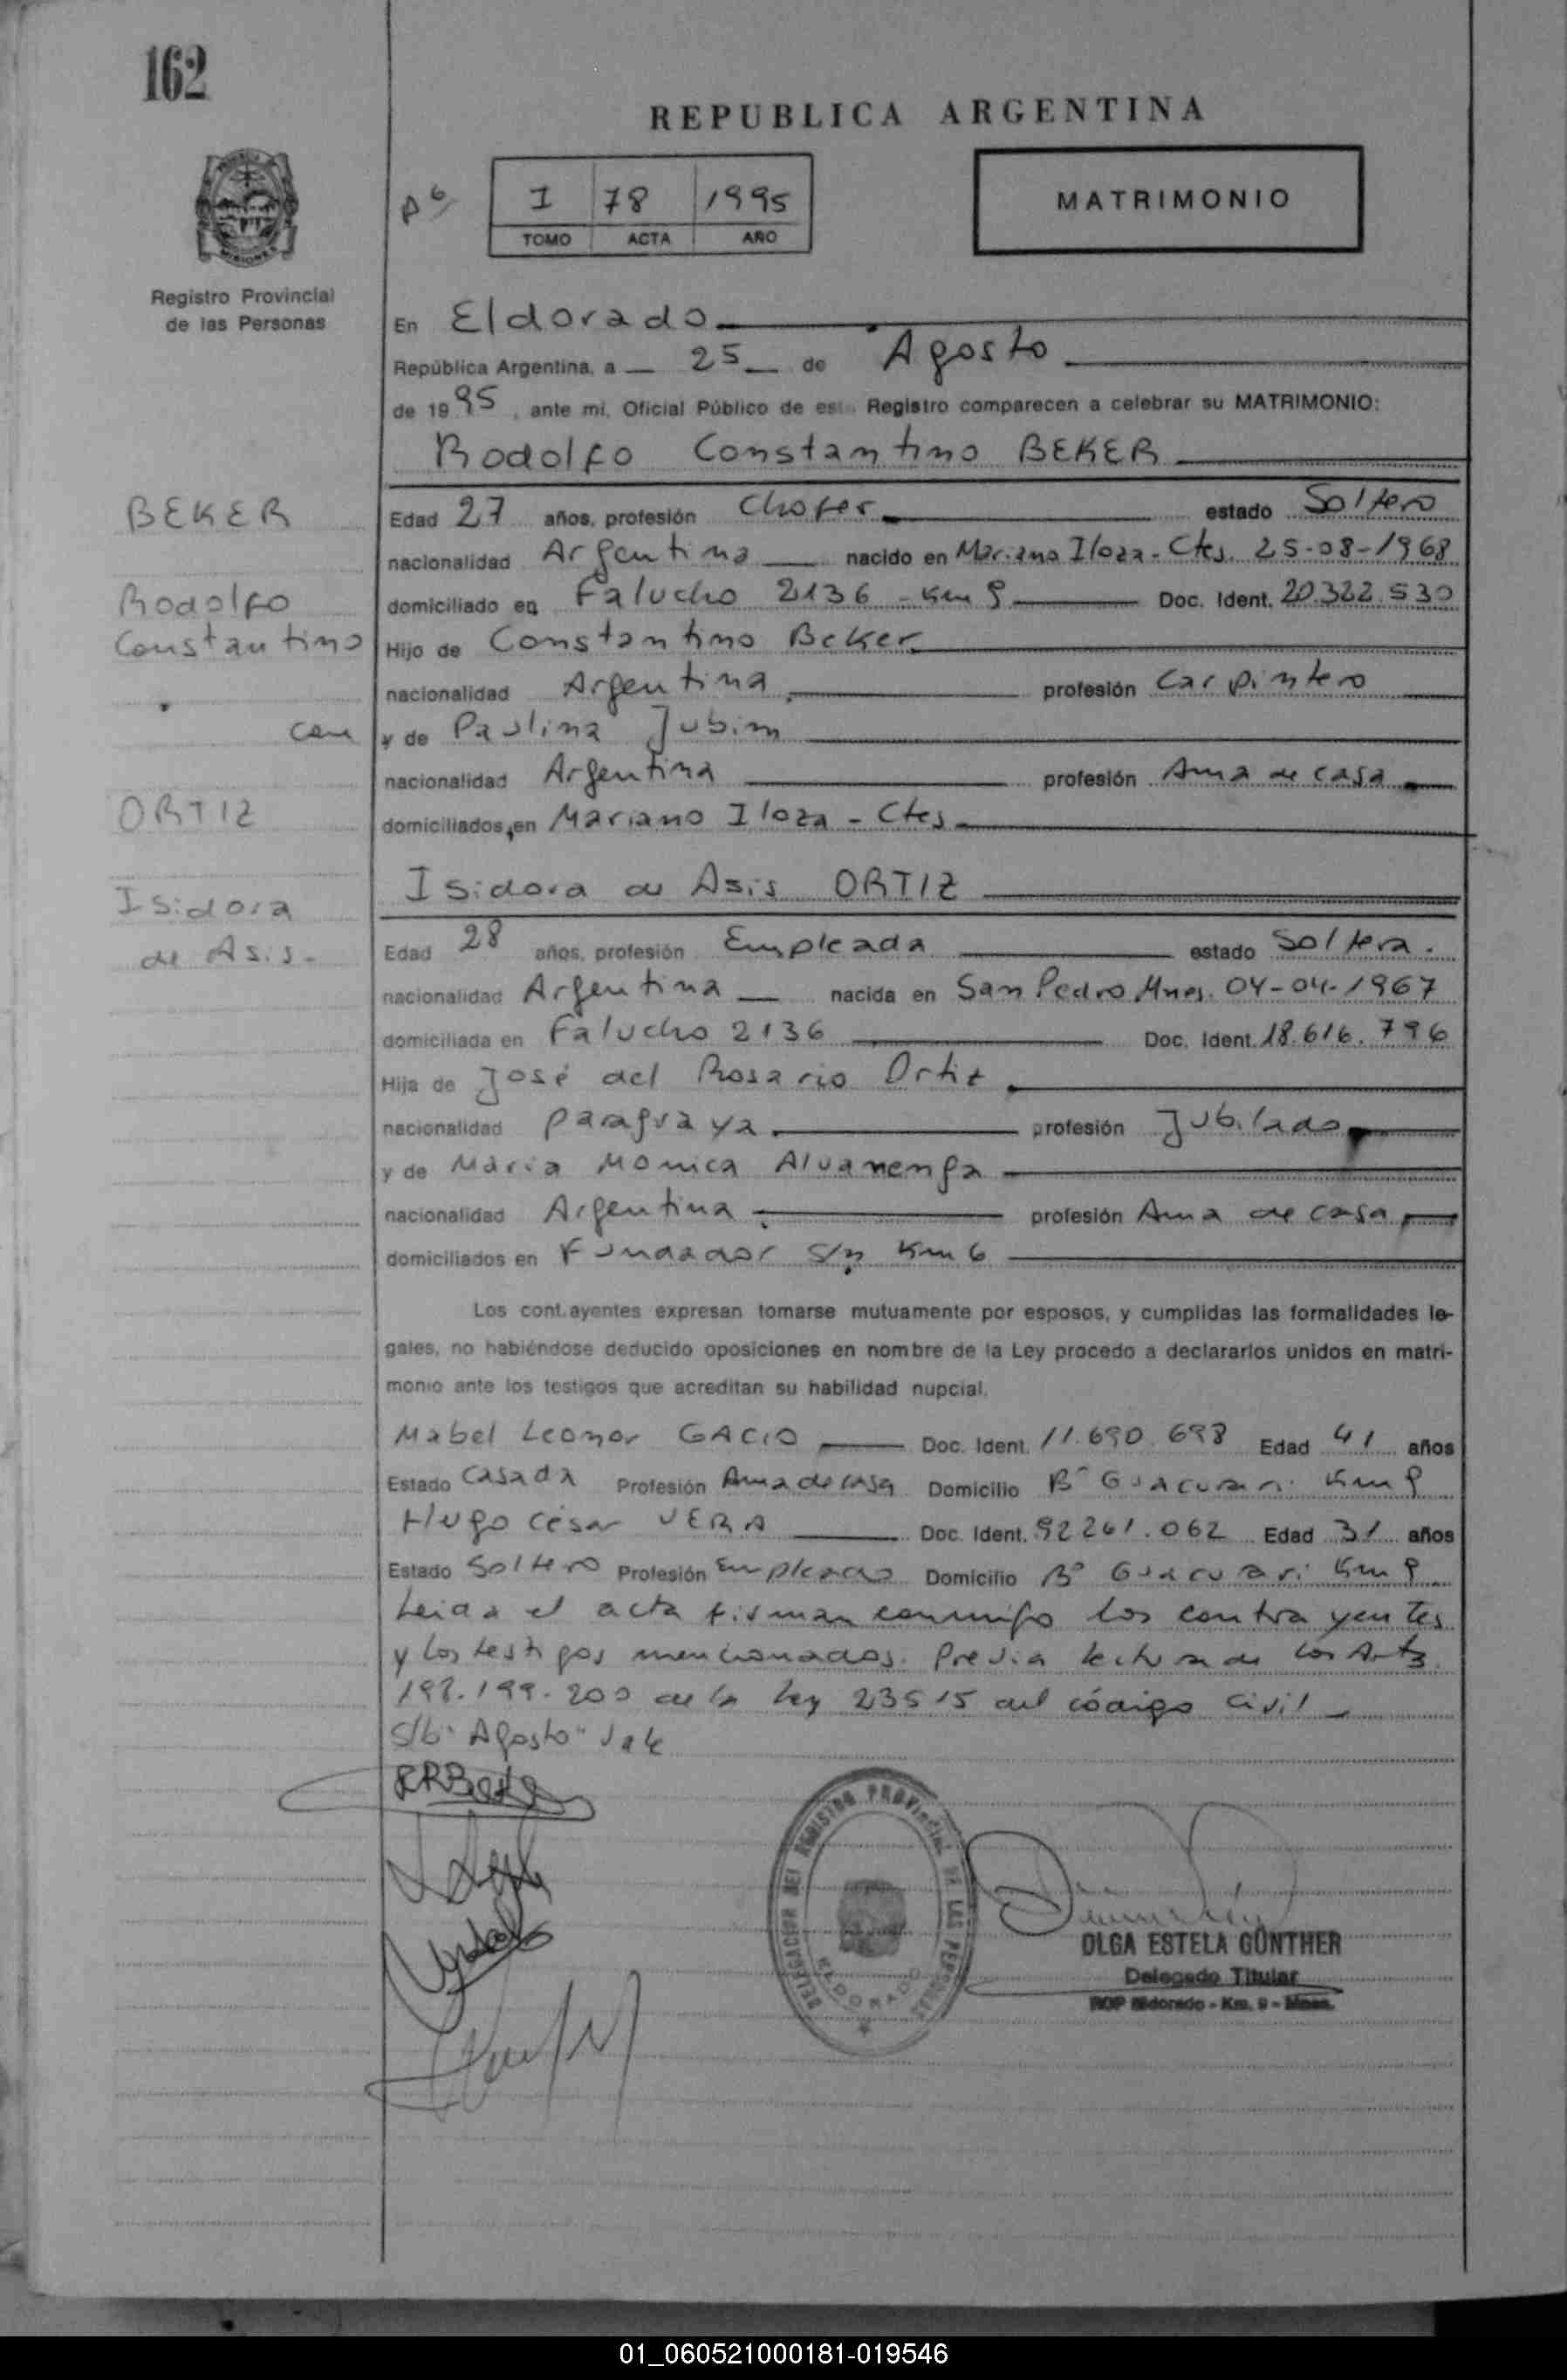 162
REPUBLICA ARGENTINA
I 78 1995
TOMO ACTA AÑO
MATRIMONIO
MISIONES
Registro Provincial
de las Personas
En Eldorado
República Argentina, a 25 de Agosto
de 1995, ante mi, Oficial Público de este Registro comparecen a celebrar su MATRIMONIO:
Rodolfo Constantino BEKER
BEKER
Rodolfo
Constantino
con
ORTIZ
Isidora
de Asis.
Edad 27 años, profesión Chofer estado Soltero
nacionalidad Argentina nacido en Mariano Iloza - Ctes. 25-08-1968
domiciliado en Falucho 2136 - Km 9 Doc. Ident. 20.322.530
Hijo de Constantino Beker
nacionalidad Argentina profesión Carpintero
y de Paulina Jubim
nacionalidad Argentina profesión Ama de casa
domiciliados en Mariano Iloza - Ctes
Isidora de Asis ORTIZ
Edad 28 años, profesión Empleada estado Soltera.
nacionalidad Argentina nacida en San Pedro Mnes. 04-04-1967
domiciliada en Falucho 2136 Doc. Ident. 18.616.796
Hija de José del Rosario Ortiz
nacionalidad paraguaya profesión Jubilado
y de Maria Monica Alvarenga
nacionalidad Argentina profesión Ama de casa
domiciliados en Fundador S/n Km 6
Los contrayentes expresan tomarse mutuamente por esposos, y cumplidas las formalidades le-
gales, no habiéndose deducido oposiciones en nombre de la Ley procedo a declararlos unidos en matri-
monio ante los testigos que acreditan su habilidad nupcial.
Mabel Leonor GACIO Doc. Ident. 11.690.698 Edad 41 años
Estado Casada Profesión Ama de casa Domicilio Bº Guacurari Km 9
Hugo César VERA Doc. Ident. 92261.062 Edad 31 años
Estado Soltero Profesión Empleado Domicilio Bº Guacurari Km 9
Leida el acta firman conmigo los contrayentes
y los testigos mencionados. Previa lectura de los Arts
198-199-200 de la Ley 23515 del código civil
S/b "Agosto" vale
DELEGACION DEL REGISTRO PROVINCIAL DE LAS PERSONAS
ELDORADO
OLGA ESTELA GÜNTHER
Delegado Titular
RDP Eldorado - Km. 9 - Mnes.
01_060521000181-019546